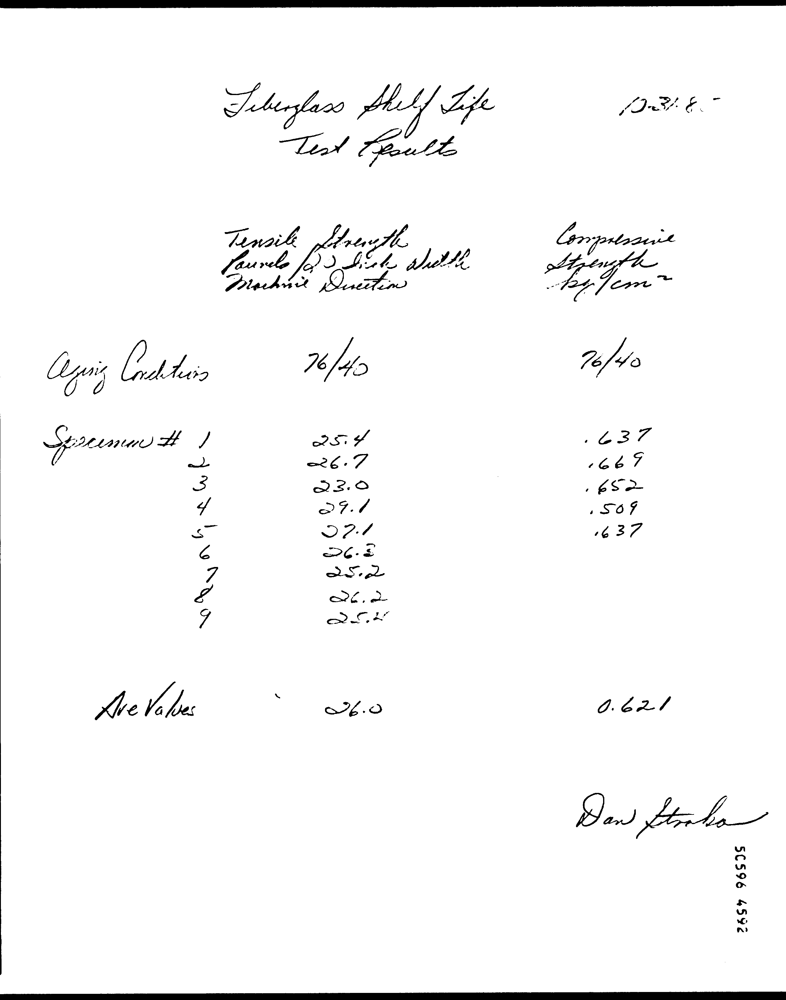 Fiberglass Shelf Life
Test Results
Tensile Strength
Pounds / Inch Width
Machine Direction
Compressive
Strength
kg/cm²
Aging Conditions 76/40 76/40
Specimen # 1 25.4 .637
2 26.7 .669
3 23.0 .652
4 29.1 .509
5 27.1 .637
6
7 25.2
8 26.2
9 25.4
Ave Values 26.0 0.621
Dan
50596 4592